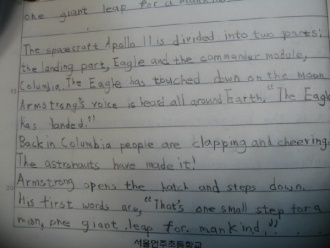 one giant leap for a mankind
The spacecraft Apollo 11 is divided into two parts:
the landing part, Eagle and the commander module,
Columbia. The Eagle has touched down on the Moon.
Armstrong's voice is heard all around Earth. "The Eagle
has landed."
Back in Columbia people are clapping and cheering.
The astronauts have made it!
Armstrong opens the hatch and steps down.
His first words are, "That's one small step for a
man, one giant leap for mankind."
서울언주초등학교